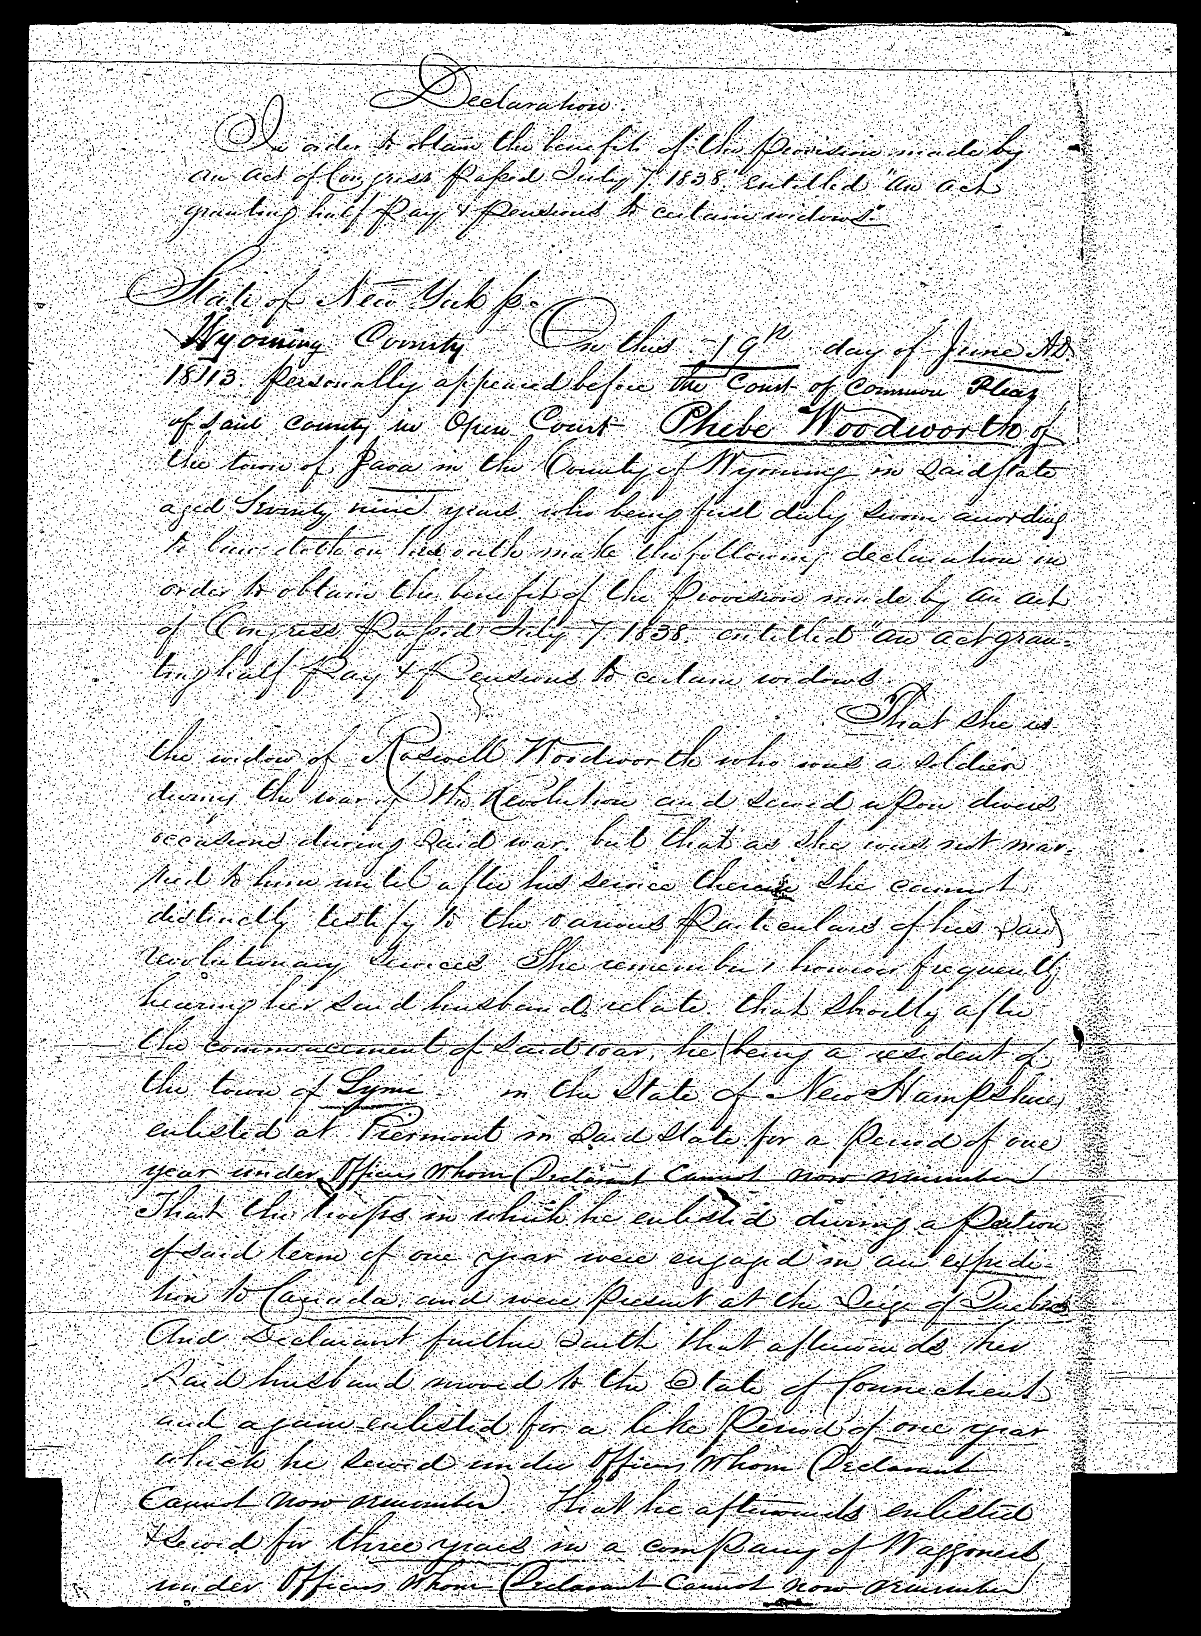 Declaration.
In order to obtain the benefit of the provision made by
an act of Congress passed July 7. 1838. entitled "an act
granting half Pay & pensions to certain widows."
State of New York ss.
Wyoming County On this 19th day of June AD
1843. personally appeared before the Court of Common Pleas
of said county in Open Court Phebe Woodworth of
the town of Java in the County of Wyoming in said State
aged Seventy nine years who being first duly sworn according
to law doth on her oath make the following declaration in
order to obtain the benefit of the Provision made by an act
of Congress Passed July 7. 1838. entitled "an act gran-
ting half Pay & Pensions to certain widows.
That she is
the widow of Roswell Woodworth who was a soldier
during the war of the Revolution and served upon divers
occasions during said war. but that as she was not mar-
ried to him until after his service therein she cannot
distinctly testify to the various Particulars of his said
revolutionary services She remembers however frequently
hearing her said husband relate that shortly after
the commencement of said war, he (being a resident of
the town of Lyme in the State of New Hampshire)
enlisted at Piermont in said State for a Period of one
year under Officers Whom Declarant Cannot now remember
That the troops in which he enlisted during a portion
of said term of one year were engaged in an expedi-
tion to Canada. and were present at the Seige of Quebec
And Declarant further saith that afterwards her
said husband moved to the State of Connecticut
and again enlisted for a like Period of one year
which he served under Officers Whom Declarant
Cannot now remember That he afterwards enlisted
& served for three years in a company of Waggoners
under Officers Whom Declarant Cannot now remember